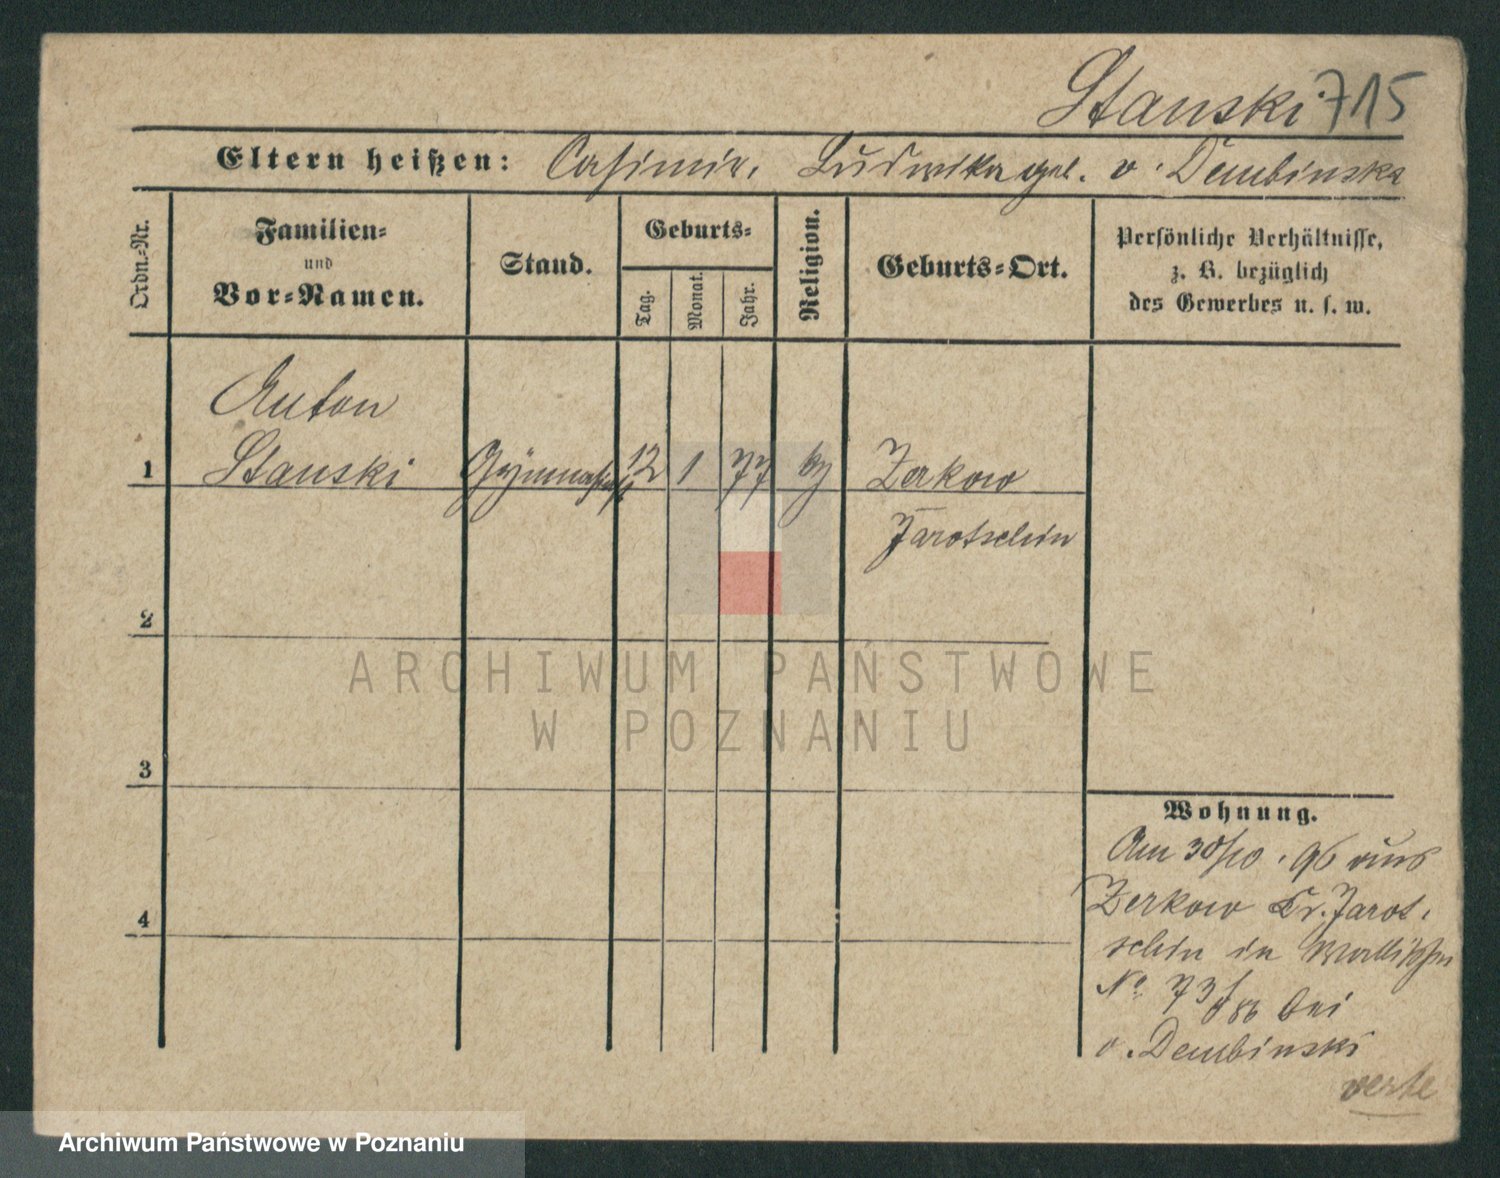 Stanski 715
Eltern heißen: Casimir, Ludwika geb. v. Dembinska
Ordn.-Nr.
Familien-
und
Vor-Namen.
Stand.
Geburts-
Tag.
Monat.
Jahr.
Religion.
Geburts-Ort.
Persönliche Verhältnisse,
z. B. bezüglich
des Gewerbes u. s. w.
Anton
1 Stanski 12 1 77 Zerkow
Jarotschin
2
3
4
Wohnung.
Am 30/10. 96 aus
Zerkow Kr. Jarot-
schin in
No 73 bei
v. Dembinski
verte
ARCHIWUM PAŃSTWOWE
W POZNANIU
Archiwum Państwowe w Poznaniu